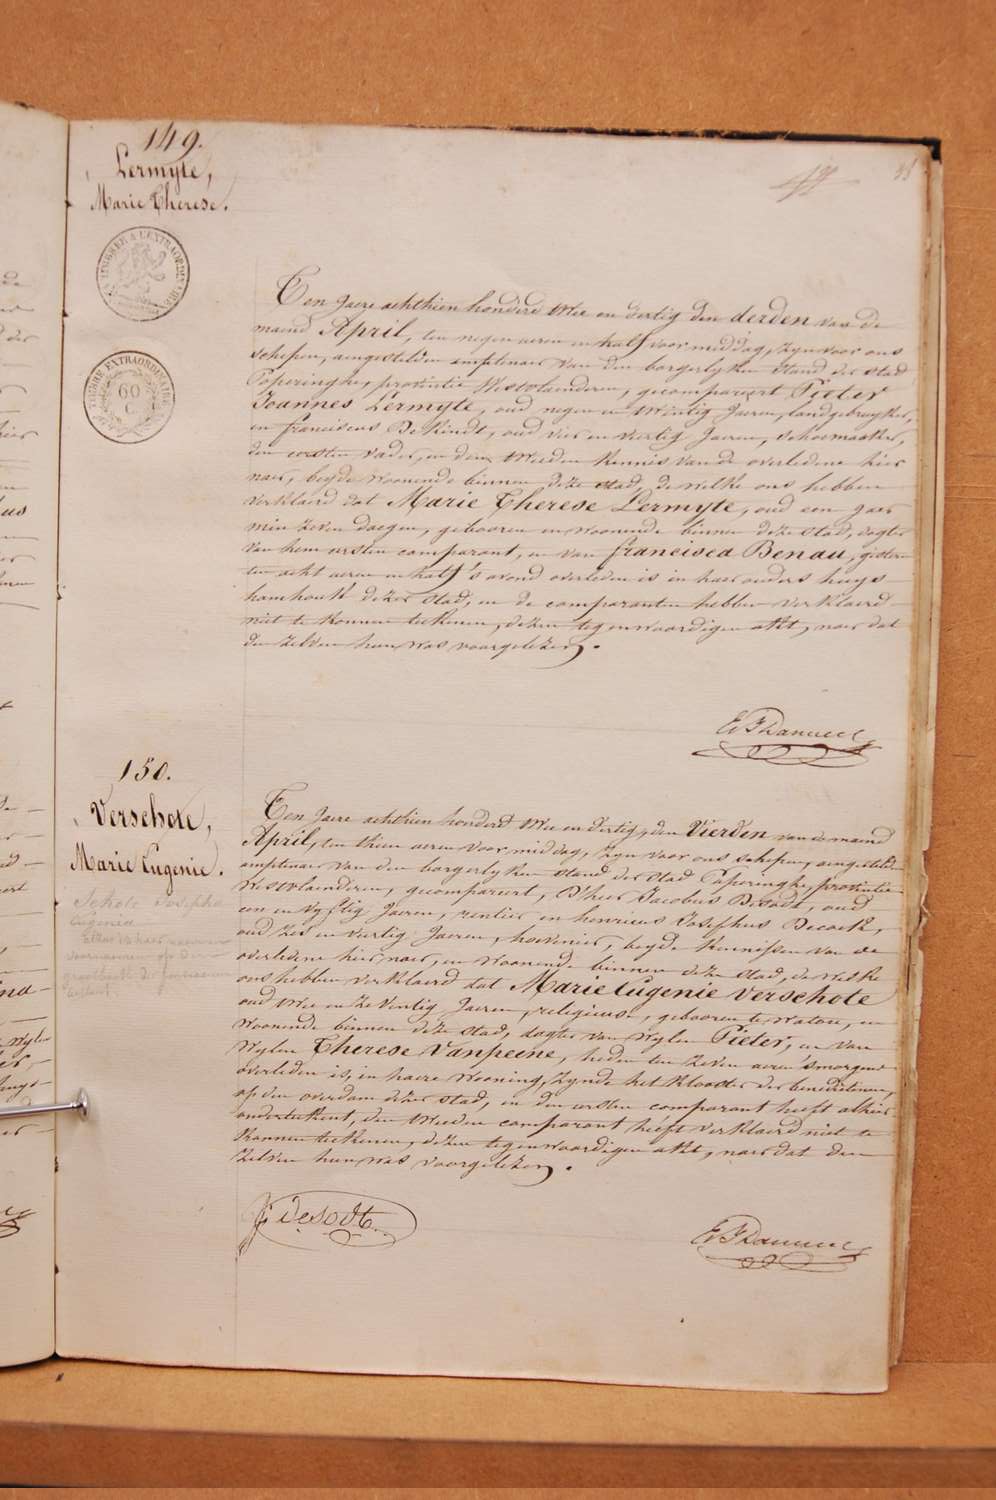 149.
Lermyte,
Marie Therese.
TIMBRE A L'EXTRAORDINAIRE
TIMBRE EXTRAORDINAIRE
60
C
Ten Jaere achthien honderd twee en dertig den derden van de
maend April, ten negen ueren en half voor middag, zyn voor ons
schepen, aengestelden amptenaer van den borgerlyken stand der stad
Poperinghe, provintie Westvlaenderen, gecompareert Pieter
Joannes Lermyte, oud negen en twintig Jaeren, landgebruyker,
en franciscus De Kindt, oud vier en veertig Jaeren, schoenmaeker,
den eersten vader, en den tweeden kennis van de overledene hier
naer, beyde woonende binnen deze stad, de welke ons hebben
verklaerd dat Marie Therese Lermyte, oud een jaer
min zeven daegen, gebooren en woonende binnen deze stad, dogter
van hem eersten comparant, en van francisca Benau, gisteren
ten acht ueren en half 's avond overleden is in haer ouders huys
hamhoutk dezer stad, en de comparanten hebben verklaerd
niet te konnen teekenen, dezen tegenwoordigen akt, naer dat
den zelven hun was voorgelezen.
150.
Verschote,
Marie Eugenie.
Schote Josepha
Eugenia
Ten Jaere achthien honderd twee en dertig, den Vierden van de maend
April, ten thien ueren voor middag, zyn voor ons schepen, aengestelden
amptenaer van den borgerlyken stand der stad Poperinghe, provintie
Westvlaenderen, gecompareert, D'heer Jacobus Desodt, oud
een en vyftig Jaeren, rentier en henricus Josephus Decock,
oud zes en veertig Jaeren, hovenier, beyde kennissen van de
overledene hier naer, en woonende binnen deze stad, de welke
ons hebben verklaerd dat Marie Eugenie Verschote
oud twee en zeventig Jaeren, religieuse, gebooren te watou, en
woonende binnen deze stad, dogter van wylen Pieter, en van
wylen Therese Vanpeene, heden ten zeven ueren 'smorgens
overleden is, in haere wooning, zynde het klooster der benedictinen,
op den overdam dezer stad, en den eersten comparant heeft alhier
onderteekent, den tweeden comparant heeft verklaerd niet te
konnen teekenen, dezen tegenwoordigen akt, naer dat den
zelven hun was voorgelezen.
J: desodt